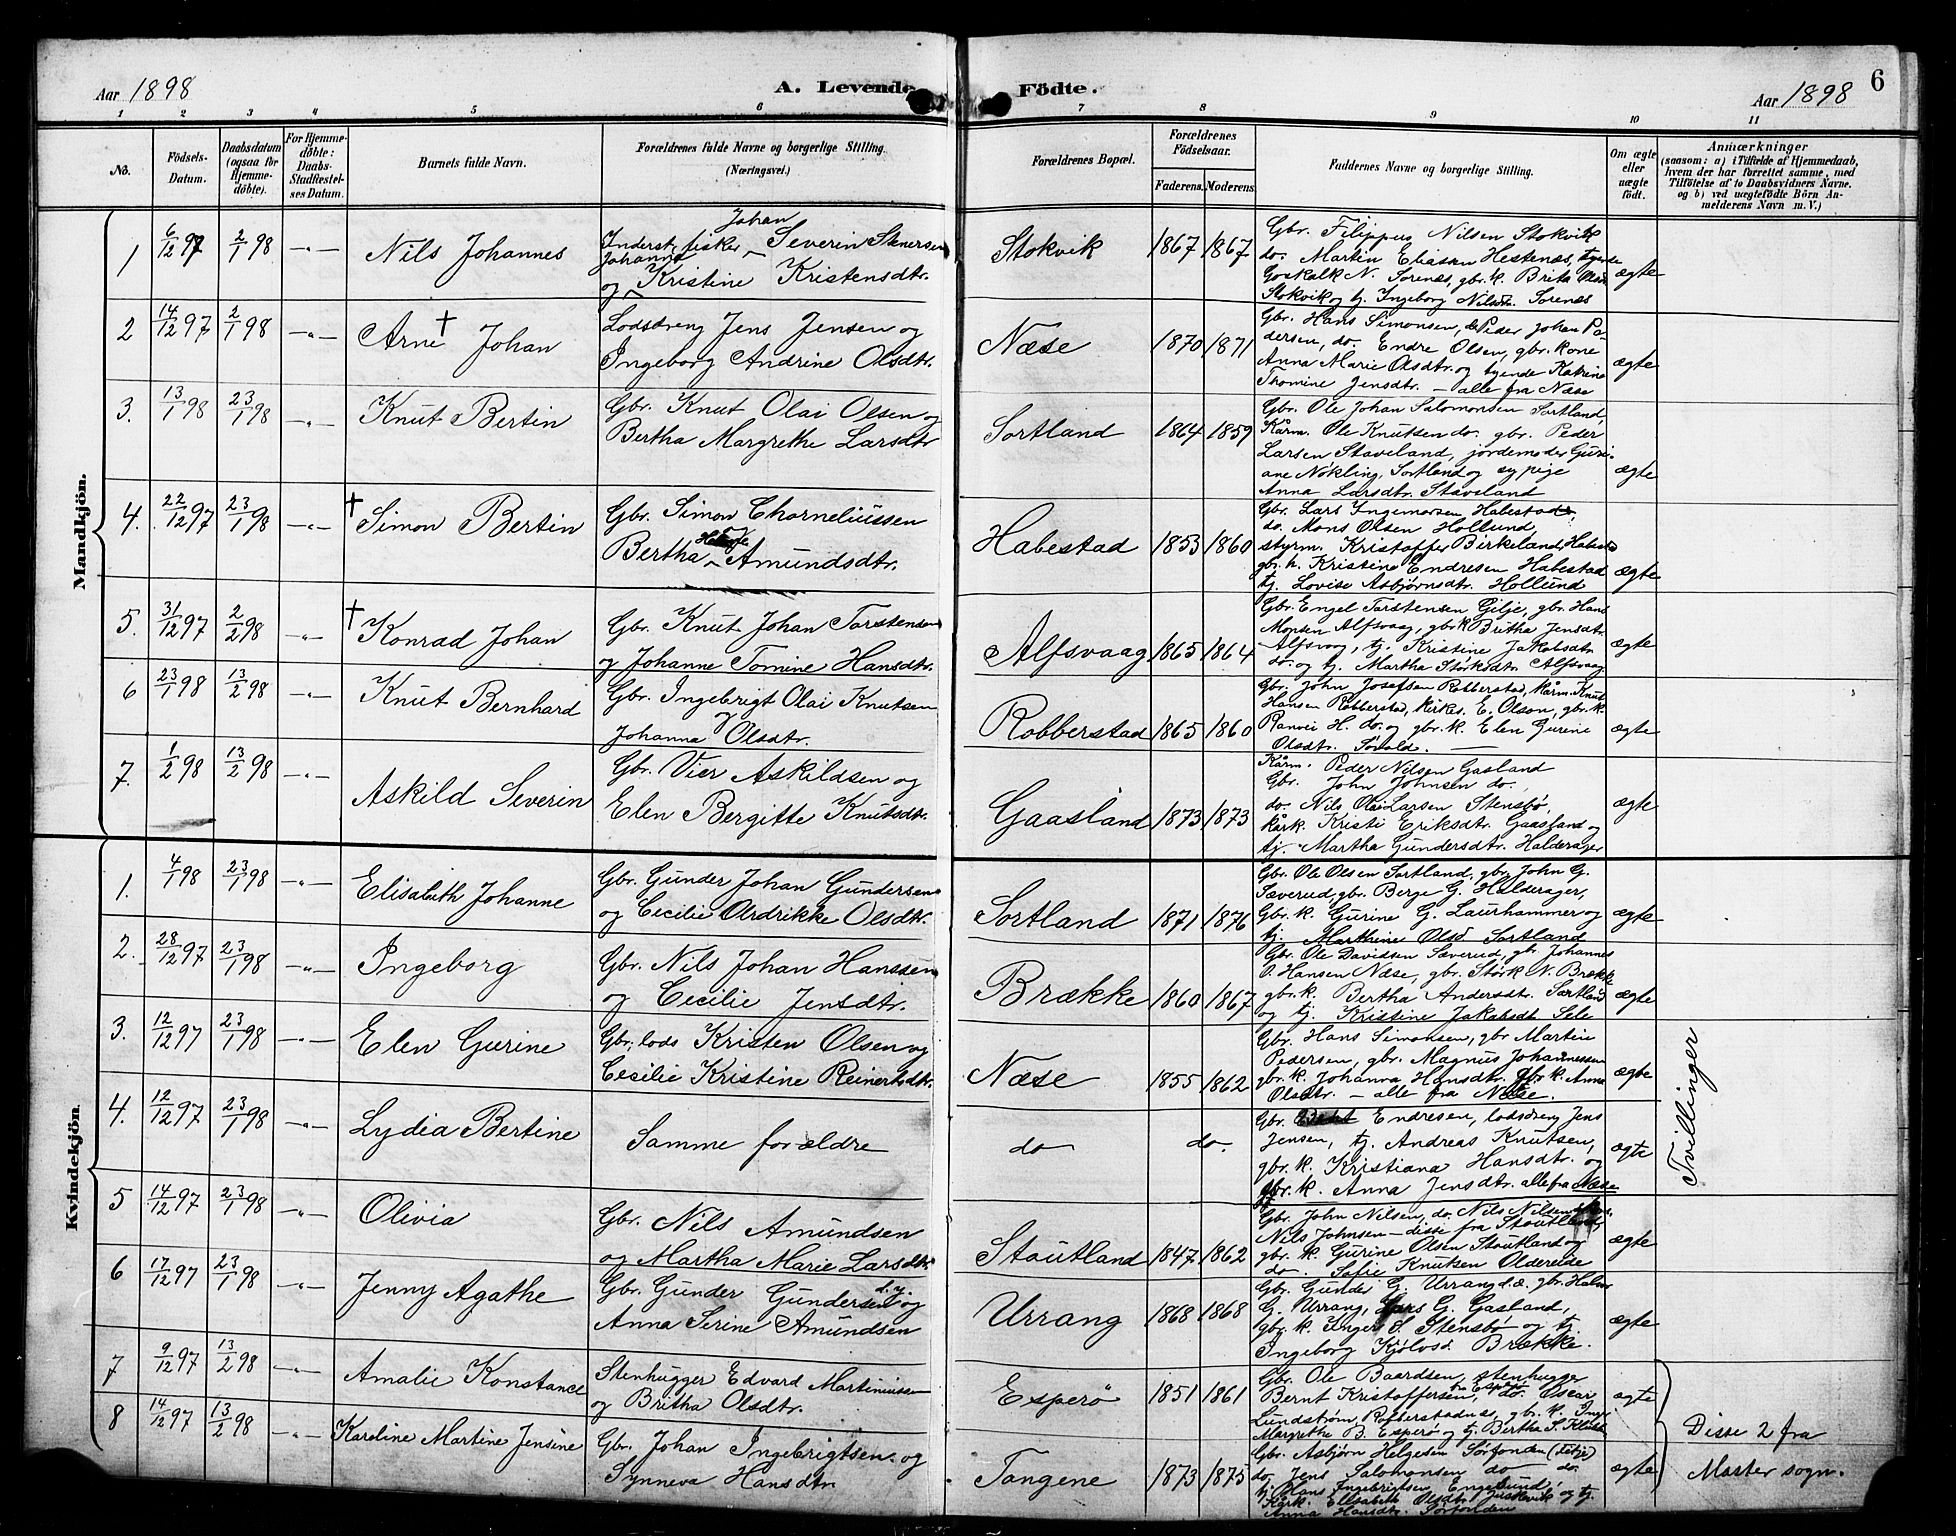 Aar 1898
A. Levende Födte.
Aar 1898
6
1 2 3 4 5 6 7 8 9 10 11
No.
Födsels-
Datum.
Daabsdatum
(ogsaa for
Hjemme-
döbte).
For Hjemme-
döbte:
Daabs-
Stadfæstel-
ses Datum.
Barnets fulde Navn.
Forældrenes fulde Navne og borgerlige Stilling.
(Næringsvei.)
Forældrenes Bopæl.
Forældrenes
Födselsaar.
Faderens. Moderens.
Faddernes Navne og borgerlige Stilling.
Om ægte
eller
uægte
födt.
Anmærkninger
(saasom: a) i Tilfælde af Hjemmedaab,
hvem der har forrettet samme, med
Tilföielse af to Daabsvidners Navne,
og b) ved uægtefödte Börn An-
melderens Navn m. V.)
Mandkjön.
1 6/12 97 2/1 98 -"- Nils Johannes
Inderst, fisker Johan Severin Stenersen
og Johanna Kristine Kristensdtr.
Stokvik 1867 1867
Gbr. Filippus Nilsen Stokvik
do. Martin Eliassen Hestenæs, tyende
Goskalk N. Sorenæs, gbr. k. Brita Olsd.
Stokvik og tj. Ingeborg Nilsdtr. Sorenæs
ægte
2 14/12 97 2/1 98 -"- Arne † Johan
Lodsdreng Jens Jensen og
Ingeborg Andrine Olsdtr.
Næse 1870 1871
Gbr. Hans Simonsen, do Peder Johan Pe-
dersen, do. Endre Olsen, gbr. kone
Anna Marie Olsdtr. og tyende Katrine
Thomine Jensdtr. - alle fra Næse
ægte
3. 13/1 98 23/1 98 -"- Knut Bertin
Gbr. Knut Olai Olsen og
Bertha Margrethe Larsdtr
Sortland 1864 1859
Gbr. Ole Johan Salomonsen Sortland,
Kårm. Ole Knutsen do. gbr. Peder
Larsen Staveland, jordemoder Guri-
ane Nökling, Sortland og sypige
Anna Larsdtr. Staveland
ægte
4. 22/12 97 23/1 98 -"- † Simon Bertin
Gbr. Simon Chorneliussen
Bertha Amundsdtr.
Habestad 1853 1860
Gbr. Lars Ingemorsen Habestad,
do. Mons Olsen Hollund,
styrm. Kristoffer Birkeland, Habestad
gbr. k. Kristine Endresen Habestad
tj. Lovise Asbjörnsdtr. Hollund
ægte
5. 31/12 97 2/2 98 -"- † Konrad Johan
Gbr. Knut Johan Torstensen
og Johanne Tomine Hansdtr.
Alfsvaag 1865 1864
Gbr. Engel Torstensen Gilje, gbr. Hans
Monsen Alfsvaag, gbr. k Britha Jensdtr.
Alfsvaag, tj. Kristine Jakobsdtr
do. og tj. Martha Störksdtr Alfsvaag
ægte
6 23/1 98 13/2 98 -"- Knut Bernhard
Gbr. Ingebrigt Olai Knutsen
Johanna Olsdtr.
Robberstad 1865 1860
Gbr. John Josefsen Robberstad, kårm. Knut
Hansen Robberstad, kirkes. E. Olson, gbr. k.
Ranvei H. do. og gbr. k. Elen Gurine
Olsdtr. Sövold.
ægte
7. 1/2 98 13/2 98 -"- Askild Severin
Gbr. Vier Askildsen og
Elen Bergitte Knutsdtr.
Gaasland 1873 1873
Kårm. Peder Nilsen Gasland
Gbr. John Johnsen do.
do. Nils Olai Larsen Stensbö,
kårk. Kristi Eriksdtr. Gaasland og
tj. Martha Gundersdtr. Halderager
ægte
Kvindekjön.
1. 4/1 98 23/1 98 -"- Elisabeth Johanne
Gbr. Gunder Johan Gundersen
og Cecilie Olsdtr.
Sortland 1871 1876
Gbr. Ole Olsen Sortland, gbr. John G.
Sæverud, gbr. Berge G. Halderager,
Gbr. k. Gurine G. Laurhammer og
tj. Marthine Olsd Sortland
ægte
2. 28/12 97 23/1 98 -"- Ingeborg
Gbr. Nils Johan Hanssen
og Cecilie Jensdtr.
Brække 1860 1867
Gbr. Ole Davidsen Sæverud, gbr. Johannes
O. Hansen Næse, gbr. Störk N. Brække
gbr. k. Bertha Andersdtr. Sortland
og tj. Kristine Jakobsdt Sele
ægte
3. 12/12 97 23/1 98 -"- Elen Gurine
Gbr., lods Kristen Olsen og
Cecilie Kristine Reinertsdtr.
Næse 1855 1862
Gbr. Hans Simonsen, gbr Martin
Pedersen, gbr. Magnus Johannessen
gbr. k. Johanna Hansdtr. gbr. k. Anna
Olsdtr. - alle fra Næse.
ægte
4. 12/12 97 23/1 98 -"- Lydia Bertine
Samme forældre
do do.
Gbr. Endresen, lodsdreng Jens
Jensen, tj. Andreas Knutsen,
gbr. k. Kristiana Hansdtr. og
gbr. k. Anna Jensdtr. alle fra Næse
ægte
Tvillinger
5 14/12 97 23/1 98 -"- Olivia
Gbr. Nils Amundsen
og Martha Marie Larsdtr.
Stoutland 1847 1862
Gbr. John Nilsen, do. Nils Nilsen
Nils Johnsen - disse fra Stoutland
gbr. k. Gurine Olsen Stoutland og
do. Sofie Knutsen Oldereide
ægte
6 17/12 97 23/1 98 -"- Jenny Agathe
Gbr. Gunder Gundersen d.y. og
Anna Serine Amundsen
Urrang 1868 1868
Gbr. Gunder G. Urrang d.æ. gbr. Halvor
G. Urrang, Lars G. Gasland,
gbr. k. Inger S. Stensbø og tj.
Ingeborg Kjölvsd. Brække.
ægte
7 9/12 97 13/2 98 -"- Amalie Konstance
Stenhugger Edvard Martinussen
og Britha Olsdtr.
Esperö 1851 1861
Gbr. Ole Baardsen, stenhugger
Bernt Kristoffersen, fra Esperö do. Oscar
Lundström, Robberstadnes, gbr. k. Inge
Margrethe B. Esperö og tj. Bertha S.
ægte
8 14/12 97 13/2 98 -"- Karoline Martine Jensine
Gbr. Johan Ingebrigtsen og
Synneva Hansdtr
Tangene 1873 1875
Gbr. Asbjørn Helgesen Sörfonden (Fitje)
do. Jens Salomonsen do do.
tj. Hans Ingebrigtsen Engesund,
Kårk. Ellisabeth Olsdtr. og tj.
Anna Hansdtr. Sørfonden
ægte
Disse 2 fra
Moster sogn.